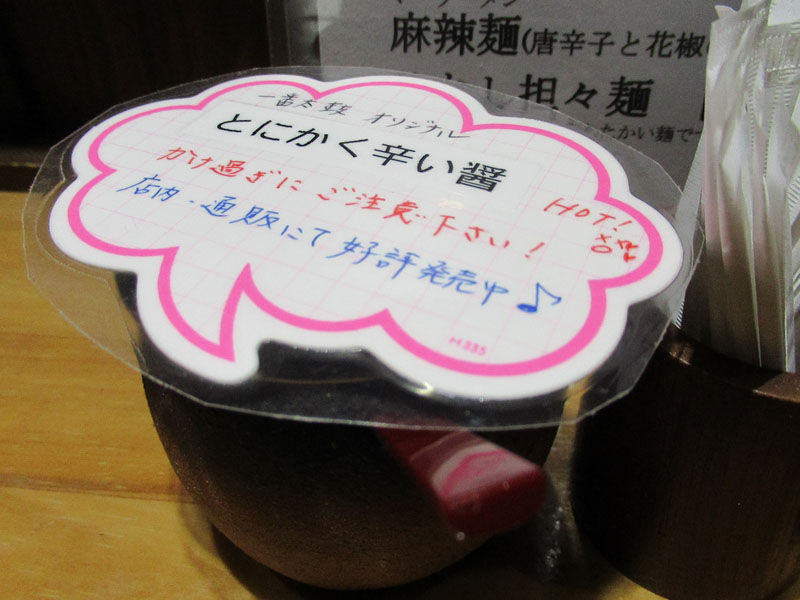 麻辣麺(唐辛子と花椒
担々麺
たかい麺で
一番太鼓 オリジナル
とにかく辛い醤
かけ過ぎにご注意下さい!
HOT!
店内・通販にて好評発売中♪
H335